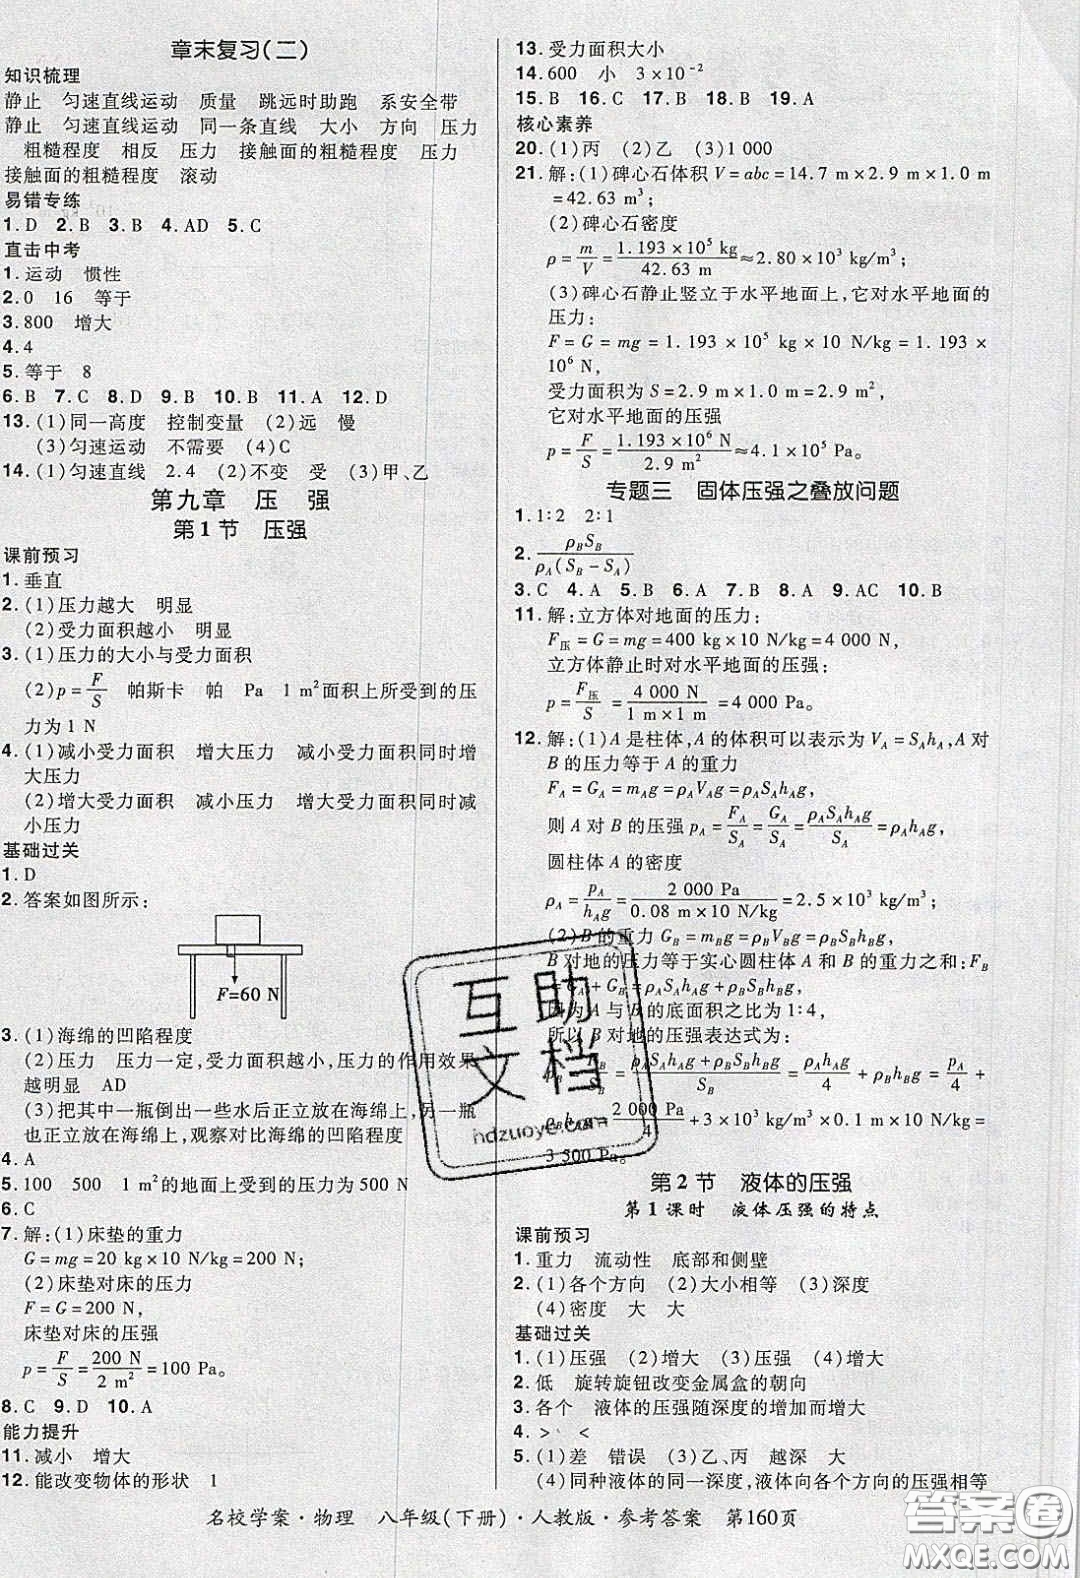 章末复习(二)
知识梳理
静止 匀速直线运动 质量 跳远时助跑 系安全带
静止 匀速直线运动 同一条直线 大小 方向 压力
粗糙程度 相反 压力 接触面的粗糙程度 压力
接触面的粗糙程度 滚动
易错专练
1. D 2. B 3. B 4. AD 5. C
直击中考
1. 运动 惯性
2. 0 16 等于
3. 800 增大
4. 4
5. 等于 8
6. B 7. C 8. D 9. B 10. B 11. A 12. D
13. (1)同一高度 控制变量 (2)远 慢
(3)匀速运动 不需要 (4)C
14. (1)匀速直线 2.4 (2)不变 受 (3)甲、乙
第九章 压 强
第1节 压强
课前预习
1. 垂直
2. (1)压力越大 明显
(2)受力面积越小 明显
3. (1)压力的大小与受力面积
(2)p=F/S 帕斯卡 帕 Pa 1 m²面积上所受到的压
力为1 N
4. (1)减小受力面积 增大压力 减小受力面积同时增
大压力
(2)增大受力面积 减小压力 增大受力面积同时减
小压力
基础过关
1. D
2. 答案如图所示:
F=60 N
3. (1)海绵的凹陷程度
(2)压力 压力一定,受力面积越小,压力的作用效果
越明显 AD
(3)把其中一瓶倒出一些水后正立放在海绵上,另一瓶
也正立放在海绵上,观察对比海绵的凹陷程度
4. A
5. 100 500 1 m²的地面上受到的压力为500 N
6. C
7. 解:(1)床垫的重力
G=mg=20 kg×10 N/kg=200 N;
(2)床垫对床的压力
F=G=200 N,
床垫对床的压强
p=F/S=200 N/2 m²=100 Pa。
8. C 9. D 10. A
能力提升
11. 减小 增大
12. 能改变物体的形状 1
13. 受力面积大小
14. 600 小 3×10⁻²
15. B 16. C 17. B 18. B 19. A
核心素养
20. (1)丙 (2)乙 (3)1 000
21. 解:(1)碑心石体积V=abc=14.7 m×2.9 m×1.0 m
=42.63 m³;
(2)碑心石密度
ρ=m/V=1.193×10⁵ kg/42.63 m≈2.80×10³ kg/m³;
(3)碑心石静止竖立于水平地面上,它对水平地面的
压力:
F=G=mg=1.193×10⁵ kg×10 N/kg=1.193×
10⁶ N,
受力面积为S=2.9 m×1 m=2.9 m²,
它对水平地面的压强
p=F/S=1.193×10⁶ N/2.9 m²≈4.1×10⁵ Pa。
专题三 固体压强之叠放问题
1. 1:2 2:1
2. ρ_B S_B/ρ_A(S_B-S_A)
3. C 4. A 5. B 6. B 7. A 8. C 9. C 10. B
11. 解:立方体对地面的压力:
F压=G=mg=400 kg×10 N/kg=4 000 N,
立方体静止时对水平地面的压强:
p=F压/S=4 000 N/1 m×1 m=4 000 Pa。
12. 解:(1)A是柱体,A的体积可以表示为V_A=S_A h_A,A对
B的压力等于A的重力
F_A=G_A=m_A g=ρ_A V_A g=ρ_A S_A h_A g,
则A对B的压强p_A=F_A/S_A=G_A/S_A=ρ_A S_A h_A g/S_A=ρ_A h_A g,
圆柱体A的密度
ρ_A=p_A/h_A g=2 000 Pa/0.08 m×10 N/kg=2.5×10³ kg/m³;
(2)B的重力G_B=m_B g=ρ_B V_B g=ρ_B S_B h_B g,
B对地的压力等于实心圆柱体A和B的重力之和:F_B
=G_A+G_B=ρ_A S_A h_A g+ρ_B S_B h_B g,
因为A与B的底面积之比为1:4,
所以B对地的压强表达式为:
p_B=F_B/S_B=ρ_A S_A h_A g+ρ_B S_B h_B g/S_B=ρ_A h_A g/4+ρ_B h_B g=p_A/4+
ρ_B h_B g=2 000 Pa/4+3×10³ kg/m³×0.1 m×10 N/kg=
3 500 Pa。
第2节 液体的压强
第1课时 液体压强的特点
课前预习
1. 重力 流动性 底部和侧壁
2. (1)各个方向 (2)大小相等 (3)深度
(4)密度 大 大
基础过关
1. (1)压强 (2)增大 (3)压强 (4)增大
2. 低 旋转旋钮改变金属盒的朝向
3. 各个 液体的压强随深度的增加而增大
4. > <
5. (1)差 错误 (3)乙、丙 越深 大
(4)同种液体的同一深度,液体向各个方向的压强相等
名校学案·物理 八年级(下册)·人教版·参考答案 第160页
互助
文档
hdzuoye.com
答案圈
MXQE.COM